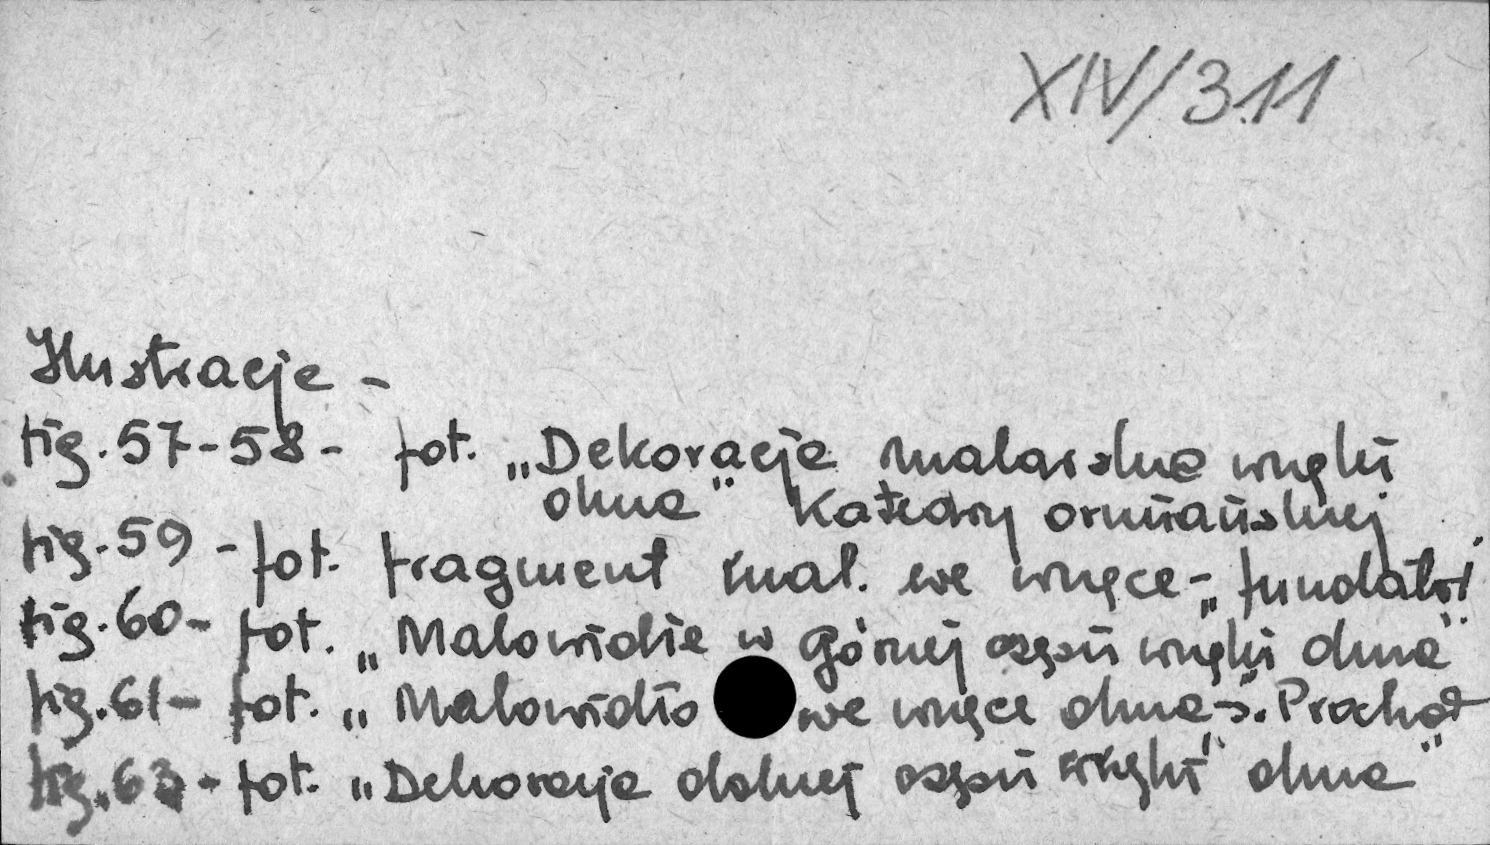 XIV/311
Ilustracje -
fig. 57-58 - fot. „Dekoracje malarskie wnęki
okna" Katedry ormiańskiej
fig. 59 - fot. fragment mal. we wnęce - „fundator"
fig. 60 - fot. „Malowidła w górnej części wnęki okna"
fig. 61 - fot. „Malowidło we wnęce okna - św. Prochor"
fig. 63 - fot. „Dekoracje dolnej części wnęki okna"